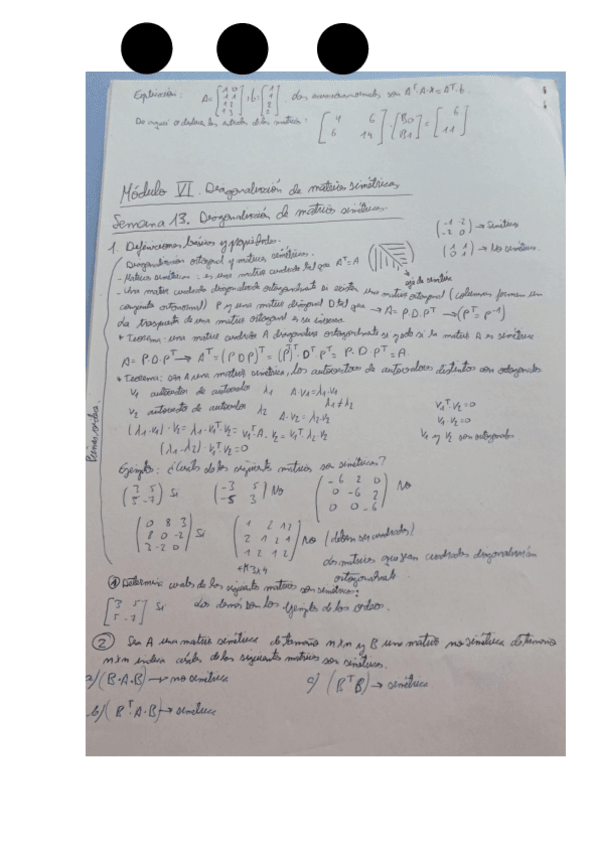 Explicación: A = [1 0; 1 1; 1 2; 1 3] b = [1; 1; 2; 2] las ecuaciones normales son Aᵀ·A·x = Aᵀ·b.
De aquí se deduce la matriz: [4 6; 6 14]·[B0; B1] = [6; 11]
Módulo VI. Diagonalización de matrices simétricas
Semana 13. Diagonalización de matrices simétricas.
1. Definiciones básicas y propiedades.
(-1 2; -2 0) → Simétrica
Diagonalización ortogonal y matrices simétricas.
(1 1; 0 1) → No simétrica
- Matriz simétrica = es una matriz cuadrada tal que Aᵀ = A
eje de simetría
- Una matriz cuadrada diagonalizable ortogonalmente si existe una matriz ortogonal (columnas forman un
conjunto ortonormal) P y una matriz diagonal D tal que → A = P·D·Pᵀ → (Pᵀ = P⁻¹)
La traspuesta de una matriz ortogonal es su inversa.
* Teorema: una matriz cuadrada A diagonaliza ortogonalmente si y solo si la matriz A es simétrica
A = P·D·Pᵀ → Aᵀ = (P D P)ᵀ = (Pᵀ)ᵀ·Dᵀ·Pᵀ = P·D·Pᵀ = A.
* Teorema: sea A una matriz simétrica, los autovectores de autovalores distintos son ortogonales
V1 autovector de autovalor λ1 A·V1 = λ1·V1
V2 autovector de autovalor λ2 λ1 ≠ λ2 A·V2 = λ2·V2
V1ᵀ·V2 = 0
V1·V2 = 0
V1 y V2 son ortogonales
(λ1·V1)·V2 = λ1·V1ᵀ·V2 = V1ᵀ·A·V2 = V1ᵀ·λ2·V2
(λ1-λ2)·V1ᵀ·V2 = 0
Ejemplo: ¿Cuáles de las siguientes matrices son simétricas?
(3 5; 5 -7) Si (-3 5; -5 3) No (-6 2 0; 0 -6 2; 0 0 -6) No
(0 8 3; 8 0 -2; 3 -2 0) Si (1 2 1 2; 2 1 2 1; 1 2 1 2) No (deben ser cuadradas)
3x4
las matrices que sean cuadradas diagonalizarán
ortogonalmente
① Determina cuales de las siguientes matrices son simétricas:
[3 5; 5 -7] Si Las demás son los ejemplos de los videos.
② Sea A una matriz simétrica de tamaño nxn y B una matriz no simétrica de tamaño
nxn indica cuáles de las siguientes matrices son simétricas.
a) (B·A·B) → no simétrica c) (BᵀB) → simétrica
b) (Bᵀ·A·B) → simétrica